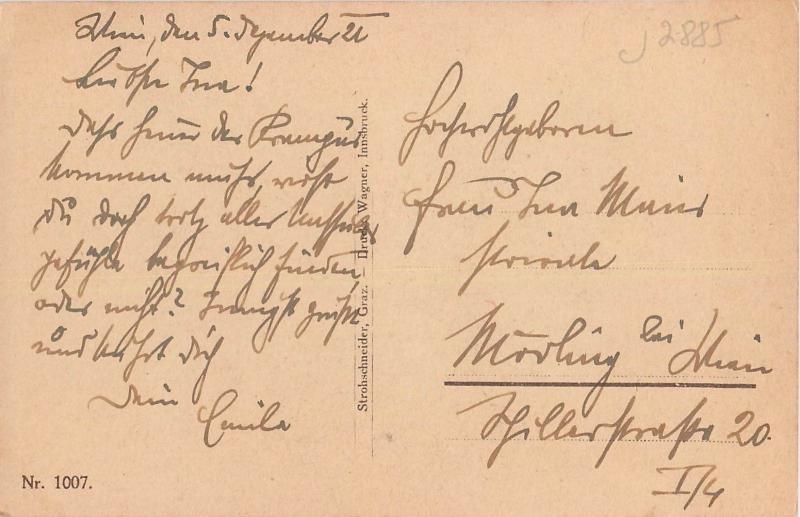 Wien, den 5. Dezember 21
Liebste Ina!
Dass heuer der Krampus
kommen muss, wirst
Du doch trotz aller
gefühle begreiflich finden,
oder nicht? Innigst grüßt
und küsst Dich
Dein
Emila
Strohschneider, Graz. — Druck: Wagner, Innsbruck.
Nr. 1007.
J 2885
Hochwohlgeboren
Frau Ina Maier
Private
Mödling bei Wien
Schillerstraße 20.
I/4